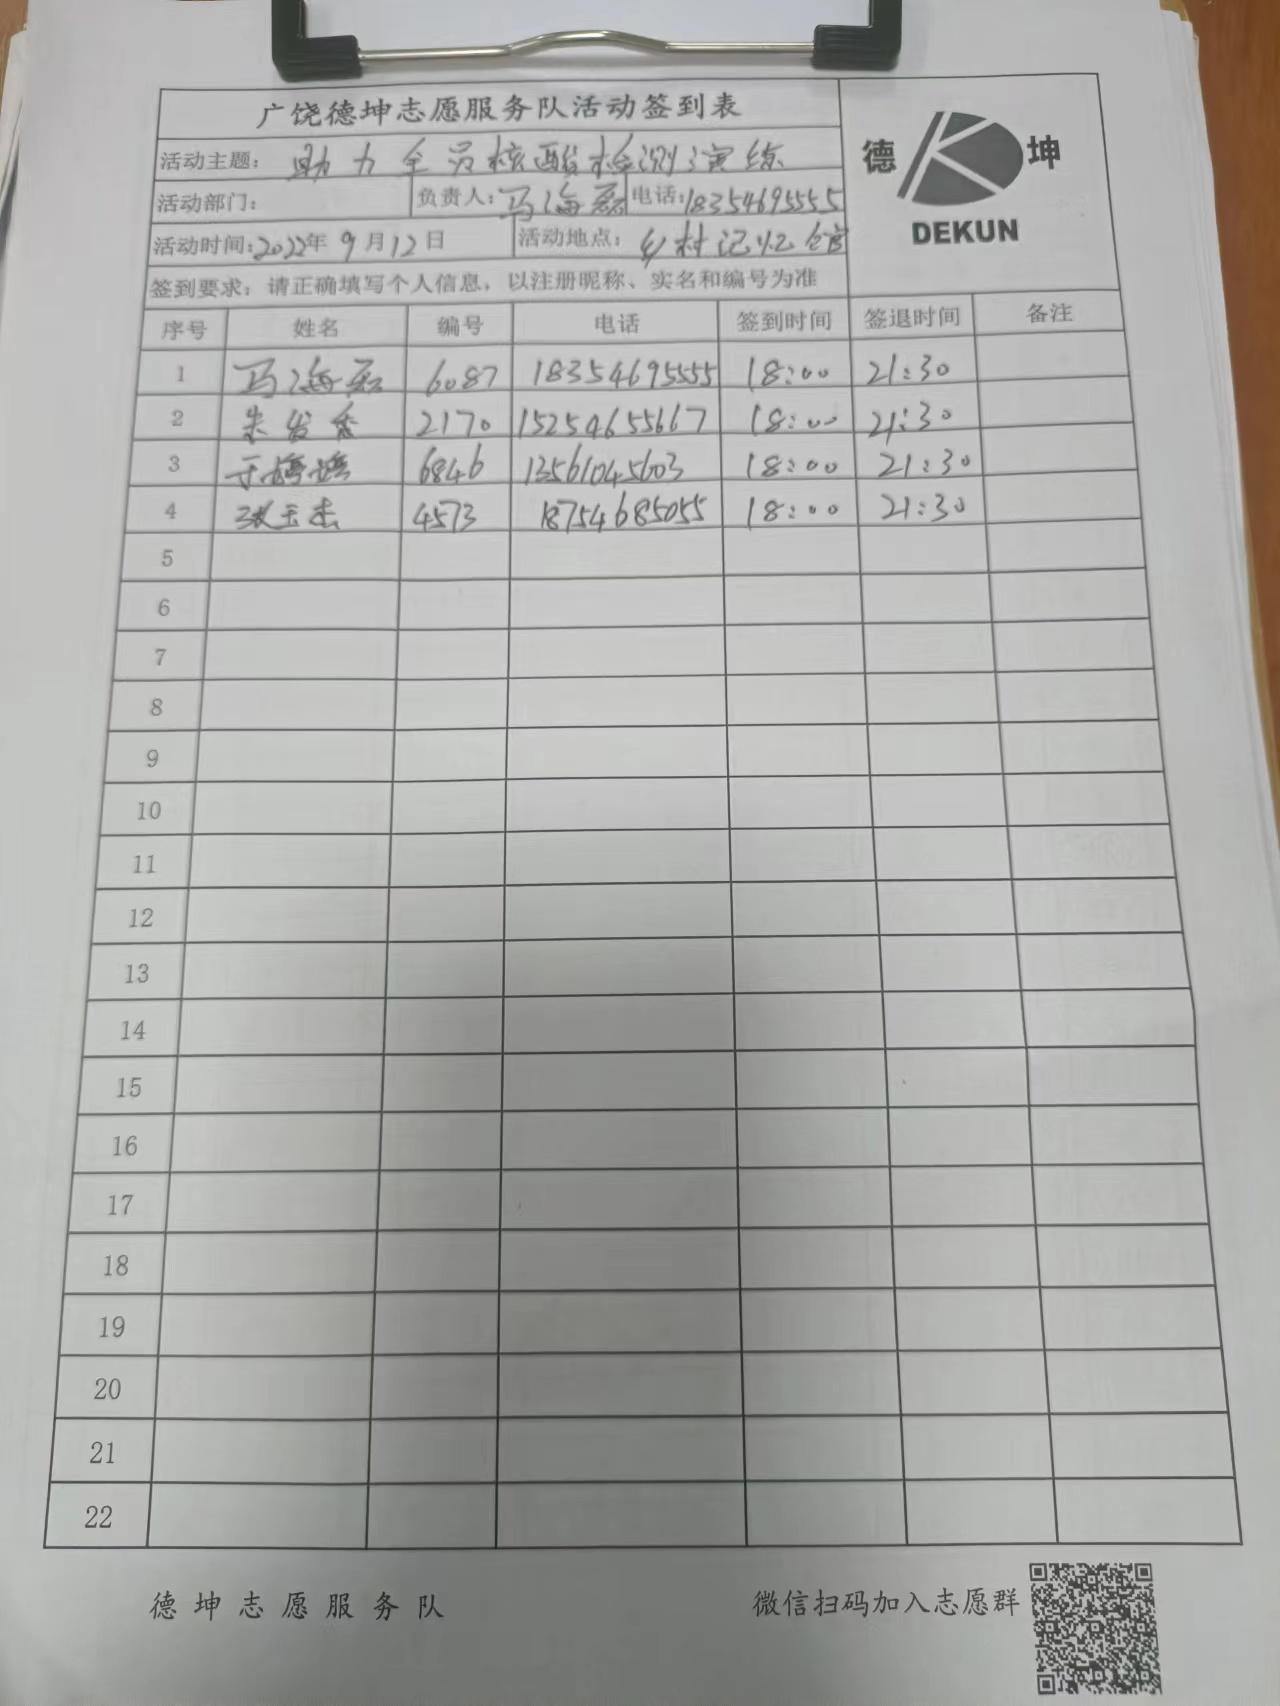 广饶德坤志愿服务队活动签到表
德 坤
DEKUN
活动主题: 助力全员核酸检测演练
活动部门: 负责人: 马海磊 电话: 18354695555
活动时间: 2022年 9月12日 活动地点: 乡村记忆馆
签到要求: 请正确填写个人信息, 以注册昵称、实名和编号为准
序号 姓名 编号 电话 签到时间 签退时间 备注
1 马海磊 6087 18354695555 18:00 21:30
2 朱发香 2170 15254655667 18:00 21:30
3 于婷婷 6846 13561045603 18:00 21:30
4 张玉杰 4573 18754685055 18:00 21:30
5
6
7
8
9
10
11
12
13
14
15
16
17
18
19
20
21
22
德坤志愿服务队 微信扫码加入志愿群